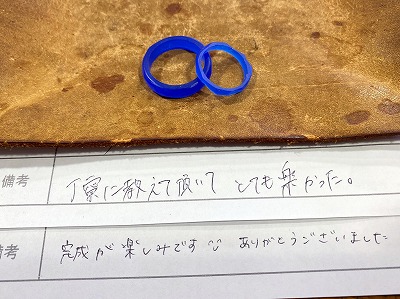 備考 丁寧に教えて頂いて とても楽かった。
備考 完成が楽しみです ありがとうございました